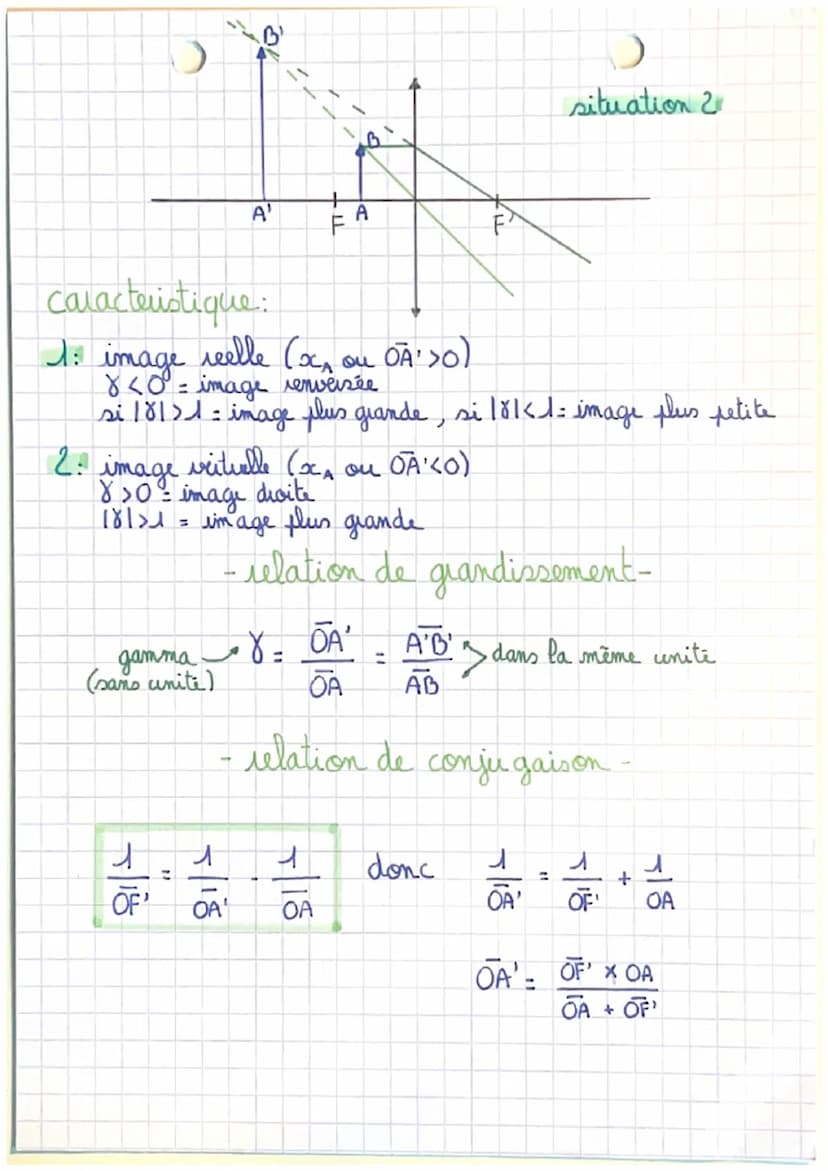 B'
situation 2
B
A' F A F'
caracteristique:
1: image reelle (x_A ou O̅A̅'>0)
γ<0 = image renversée
si |γ|>1 = image plus grande, si |γ|<1 = image plus petite
2: image virtuelle (x_A ou O̅A̅'<0)
γ>0 = image droite
|γ|>1 = image plus grande
- relation de grandissement -
gamma → γ = O̅A̅'/O̅A̅ = A̅'B̅'/A̅B̅ > dans la même unité
(sans unité)
- relation de conjugaison -
1/O̅F̅' = 1/O̅A̅' - 1/O̅A̅ donc 1/O̅A̅' = 1/O̅F̅' + 1/OA
O̅A̅' = O̅F̅' x OA / O̅A̅ + O̅F̅'